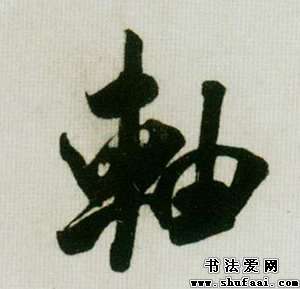 軸
书法爱网
www.shufaai.com